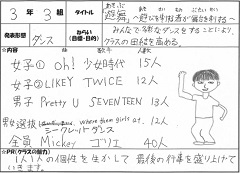 3年3組 タイトル 遊舞 ～遊びを制する者が舞台を制する～
発表形態 ダンス ねらい(目標・目的) みんなで活動なダンスをすることにより、クラスの団結を高める。
女子① Oh! 少女時代 15人
女子② LIKEY TWICE 12人
男子 Pretty U SEVENTEEN 13人
男女選抜 where them girls at. 12人
シークレットダンス
全員 Mickey ゴリエ 40人
☆PR(クラスの魅力)
1人1人の個性を生かして最後の行事を盛り上げていきます。